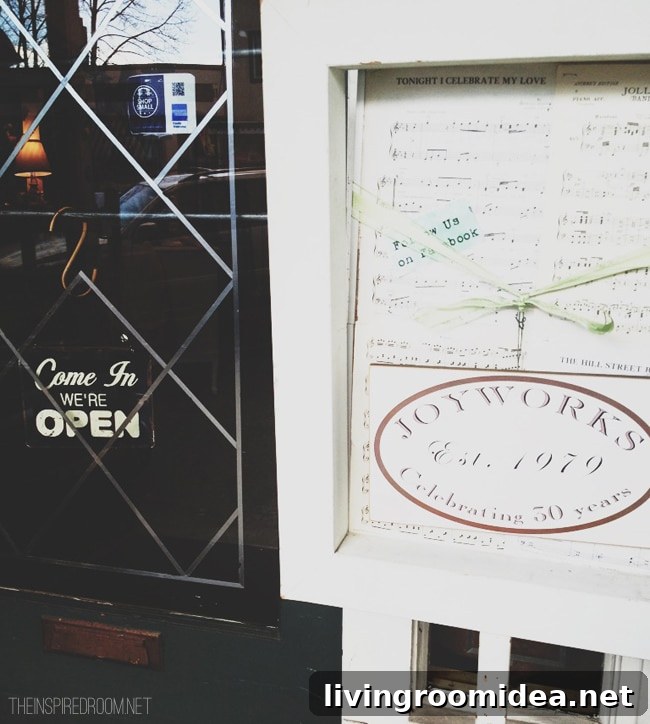 SHOP
SMALL
Come In
WE'RE
OPEN
TONIGHT I CELEBRATE MY LOVE
Follow Us
on Facebook
THE HILL STREET
JOYWORKS
Est. 1979
Celebrating 30 years
THEINSPIREDROOM.NET
livingroomidea.net